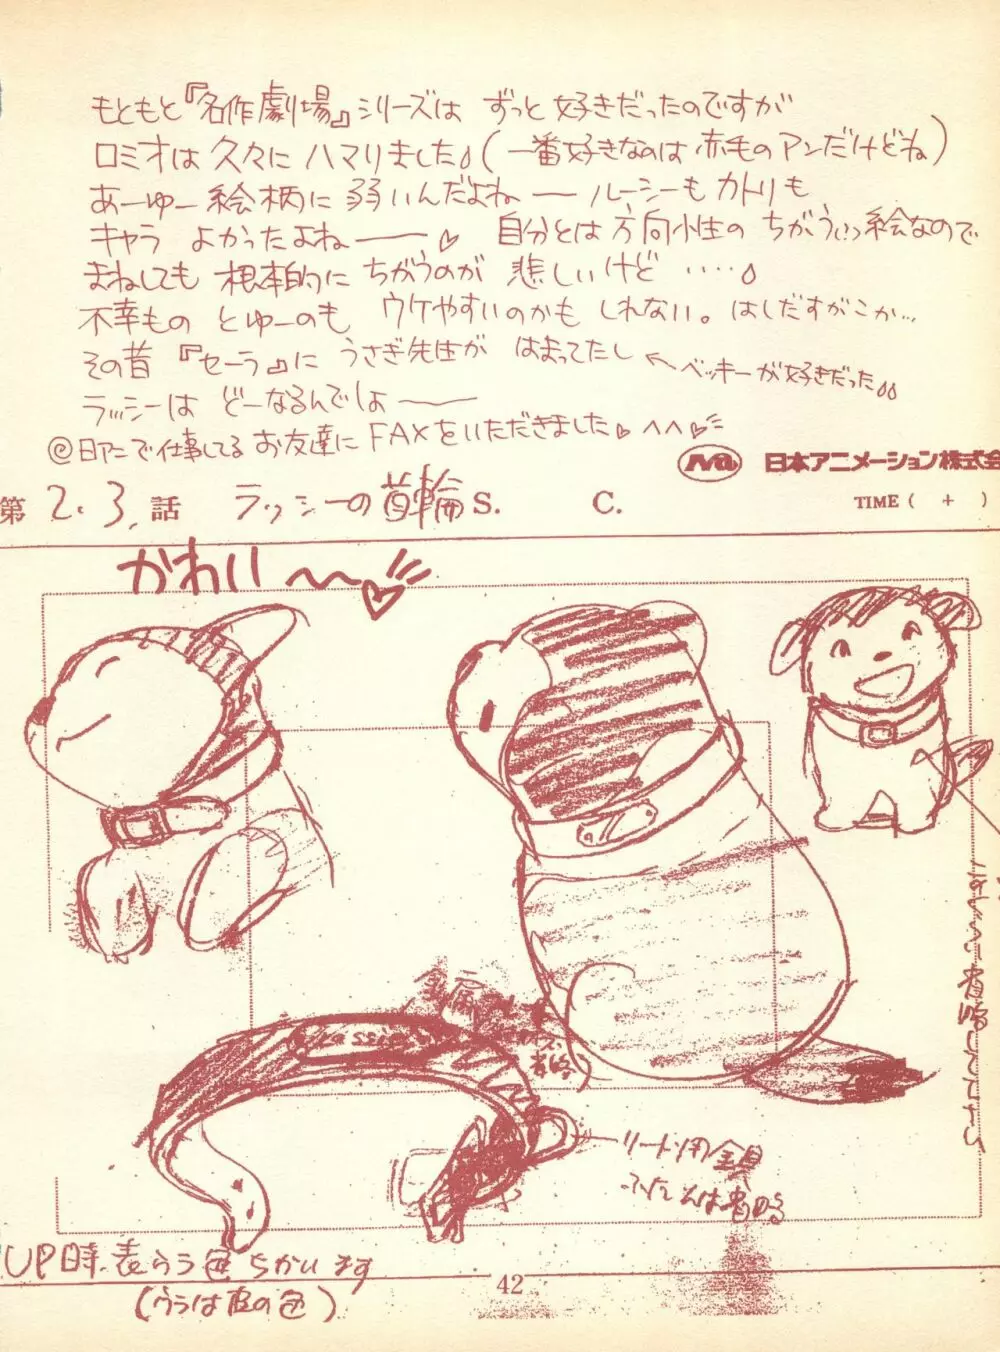 もともと『名作劇場』シリーズは ずっと好きだったのですが
ロミオは久々に ハマりました。(一番好きなのは 赤毛のアンだけどね)
あーゆー絵柄に弱いんだよねー ルーシーも カトリも
キャラ よかったよねー♡ 自分とは方向小性の ちがうっつ絵なので
まねしても 根本的に ちがうのが 悲しいけど ‥‥。
不幸もの とゆーのも ウケやすいのかも しれない。はしだすがこか…
その昔『セーラ』に うさぎ先生が はまってたし ←ベッキーが好きだった。
ラッシーは どーなるんでしょーー
@日アニで仕事してる お友達に FAXをいただきました♡ ^^♡
日本アニメーション株式会
第 2.3. 話 ラッシーの首輪 S. C. TIME ( + )
かわい〜〜♡
金属
LASSIE
省略
省略して下さい
リード用金具
ふだんは省略
UP時、表うら色ちがいます
(ウラは皮の色)
42